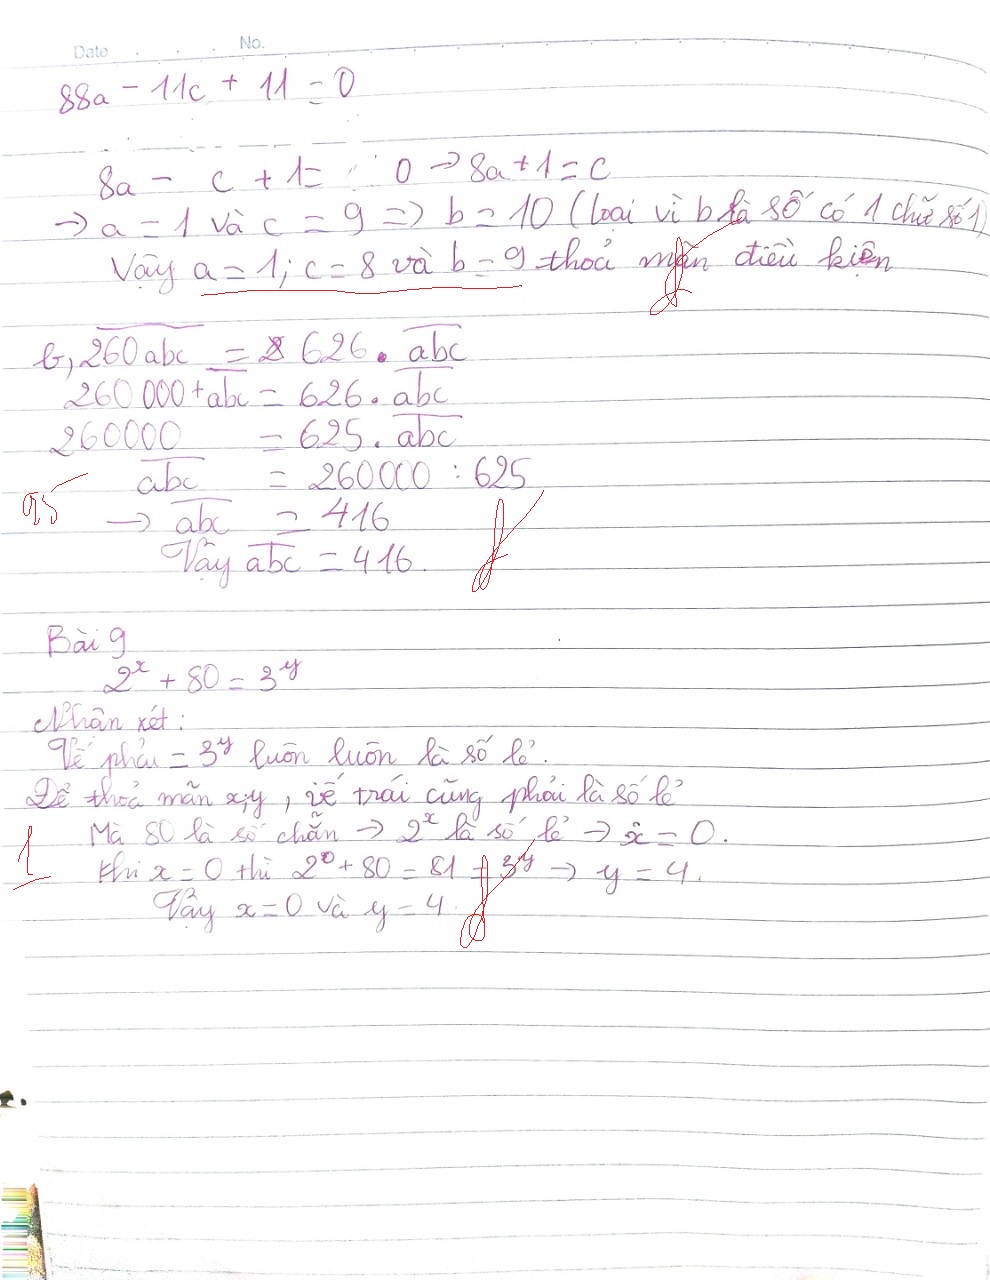 Date . . . No.
88a - 11c + 11 = 0
8a - c + 1 = 0 → 8a + 1 = c
→ a = 1 và c = 9 => b = 10 (loại vì b là số có 1 chữ số)
Vậy a = 1; c = 8 và b = 9 thoả mãn điều kiện
b, 260abc = 626 . abc
260 000 + abc = 626 . abc
260000 = 625 . abc
abc = 260000 : 625
→ abc = 416
Vậy abc = 416.
Bài 9
2^x + 80 = 3^y
Nhận xét:
Vế phải = 3^y luôn luôn là số lẻ.
Để thoả mãn x,y, vế trái cũng phải là số lẻ
Mà 80 là số chẵn → 2^x là số lẻ → x = 0.
1
Khi x = 0 thì 2^0 + 80 = 81 = 3^y → y = 4.
Vậy x = 0 và y = 4.